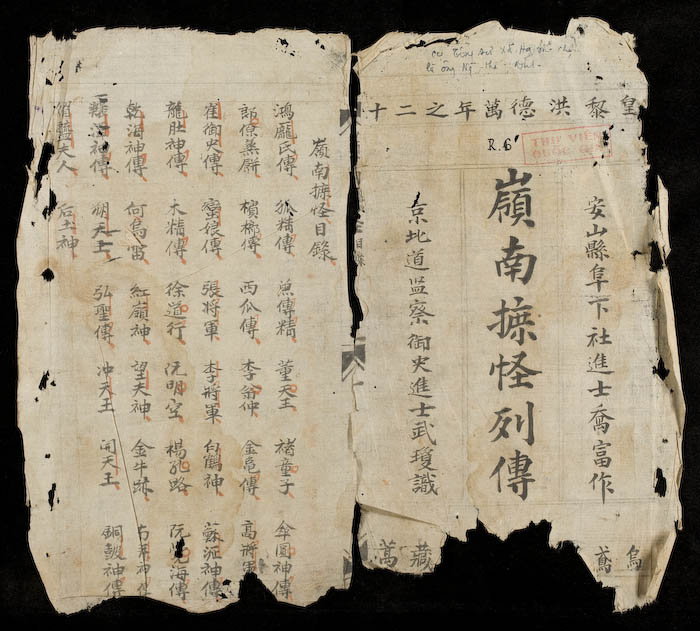 皇黎洪德萬年之二十
R. 6
THU VIEN
安山縣阜下社進士喬富作
嶺南摭怪列傳
京北道监察御史進士武瓊識
烏
鳶
藏
萬
嶺南摭怪目錄
鴻龐氏傳 狐精傳 魚傳精 董天王 褚童子 傘圓神傳
郎僚蒸餅 檳榔傳 西瓜傳 李翁仲 金龜傳 高將軍
崔御史傳 蠻娘傳 張將軍 李將軍 白鶴神 蘇泒神傳
龍肚神傳 木精傳 徐道行 阮明空 楊孔路 阮覺海傳
乾海神傳 何烏雷 紅嶺神 望夫神 金牛跡
神傳 朔天王 弘聖傳 冲天王 開天王 銅皷神傳
夫人 后土神